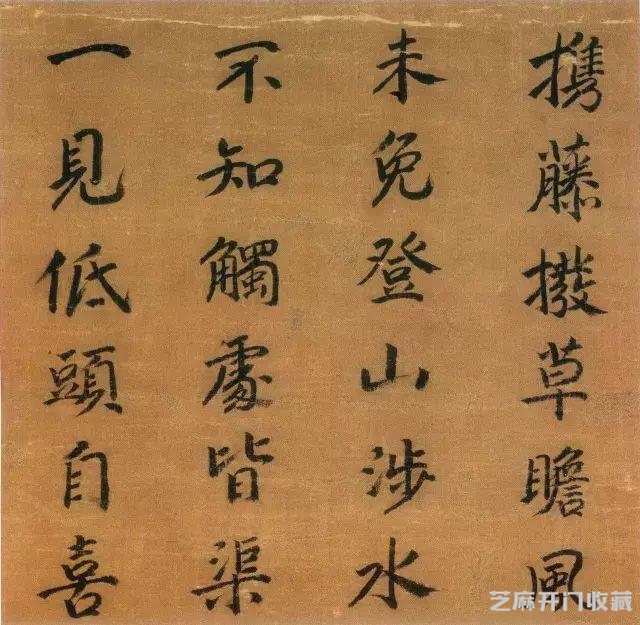 携藤撥草瞻風
未免登山涉水
不知觸處皆渠
一見低頭自喜
芝麻开门收藏